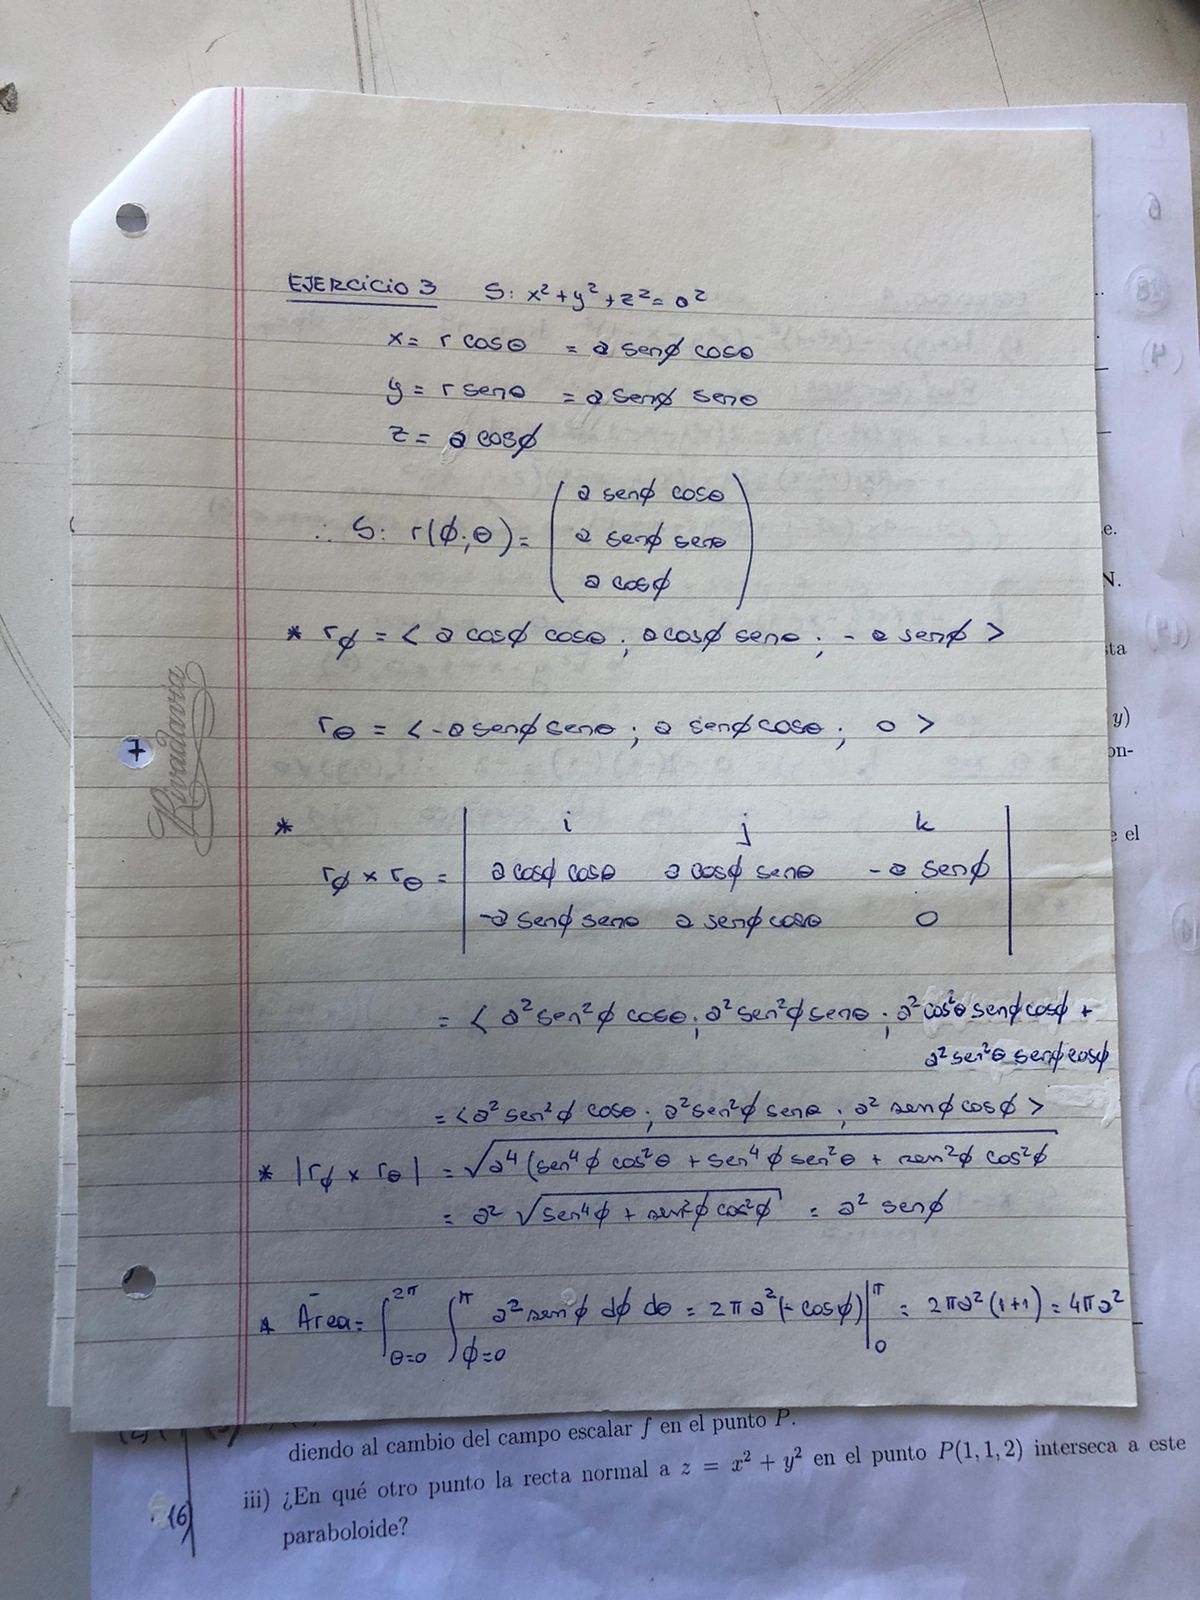 EJERCICIO 3 S: x² + y² + z² = a²
x = r cosθ = a senϕ cosθ
y = r senθ = a senϕ senθ
z = a cosϕ
∴ S: r(ϕ;θ) = ( a senϕ cosθ
a senϕ senθ
a cosϕ )
* rϕ = < a cosϕ cosθ ; a cosϕ senθ ; - a senϕ >
rθ = < -a senϕ senθ ; a senϕ cosθ ; 0 >
* i j k
rϕ × rθ = | a cosϕ cosθ a cosϕ senθ - a senϕ |
-a senϕ senθ a senϕ cosθ 0
= < a² sen²ϕ cosθ ; a² sen²ϕ senθ ; a² cos²θ senϕ cosϕ +
a² sen²θ senϕ cosϕ
= < a² sen²ϕ cosθ ; a² sen²ϕ senθ ; a² senϕ cosϕ >
* |rϕ × rθ| = √a⁴ (sen⁴ϕ cos²θ + sen⁴ϕ sen²θ + sen²ϕ cos²ϕ
= a² √sen⁴ϕ + sen²ϕ cos²ϕ = a² senϕ
* Área = ∫θ=0^2π ∫ϕ=0^π a² senϕ dϕ dθ = 2π a² (- cosϕ)|0^π = 2πa² (1+1) = 4πa²
Rivadavia
7
6
e.
N.
sta
y)
on-
e el
diendo al cambio del campo escalar f en el punto P.
iii) ¿En qué otro punto la recta normal a z = x² + y² en el punto P(1, 1, 2) interseca a este
paraboloide?
(6)